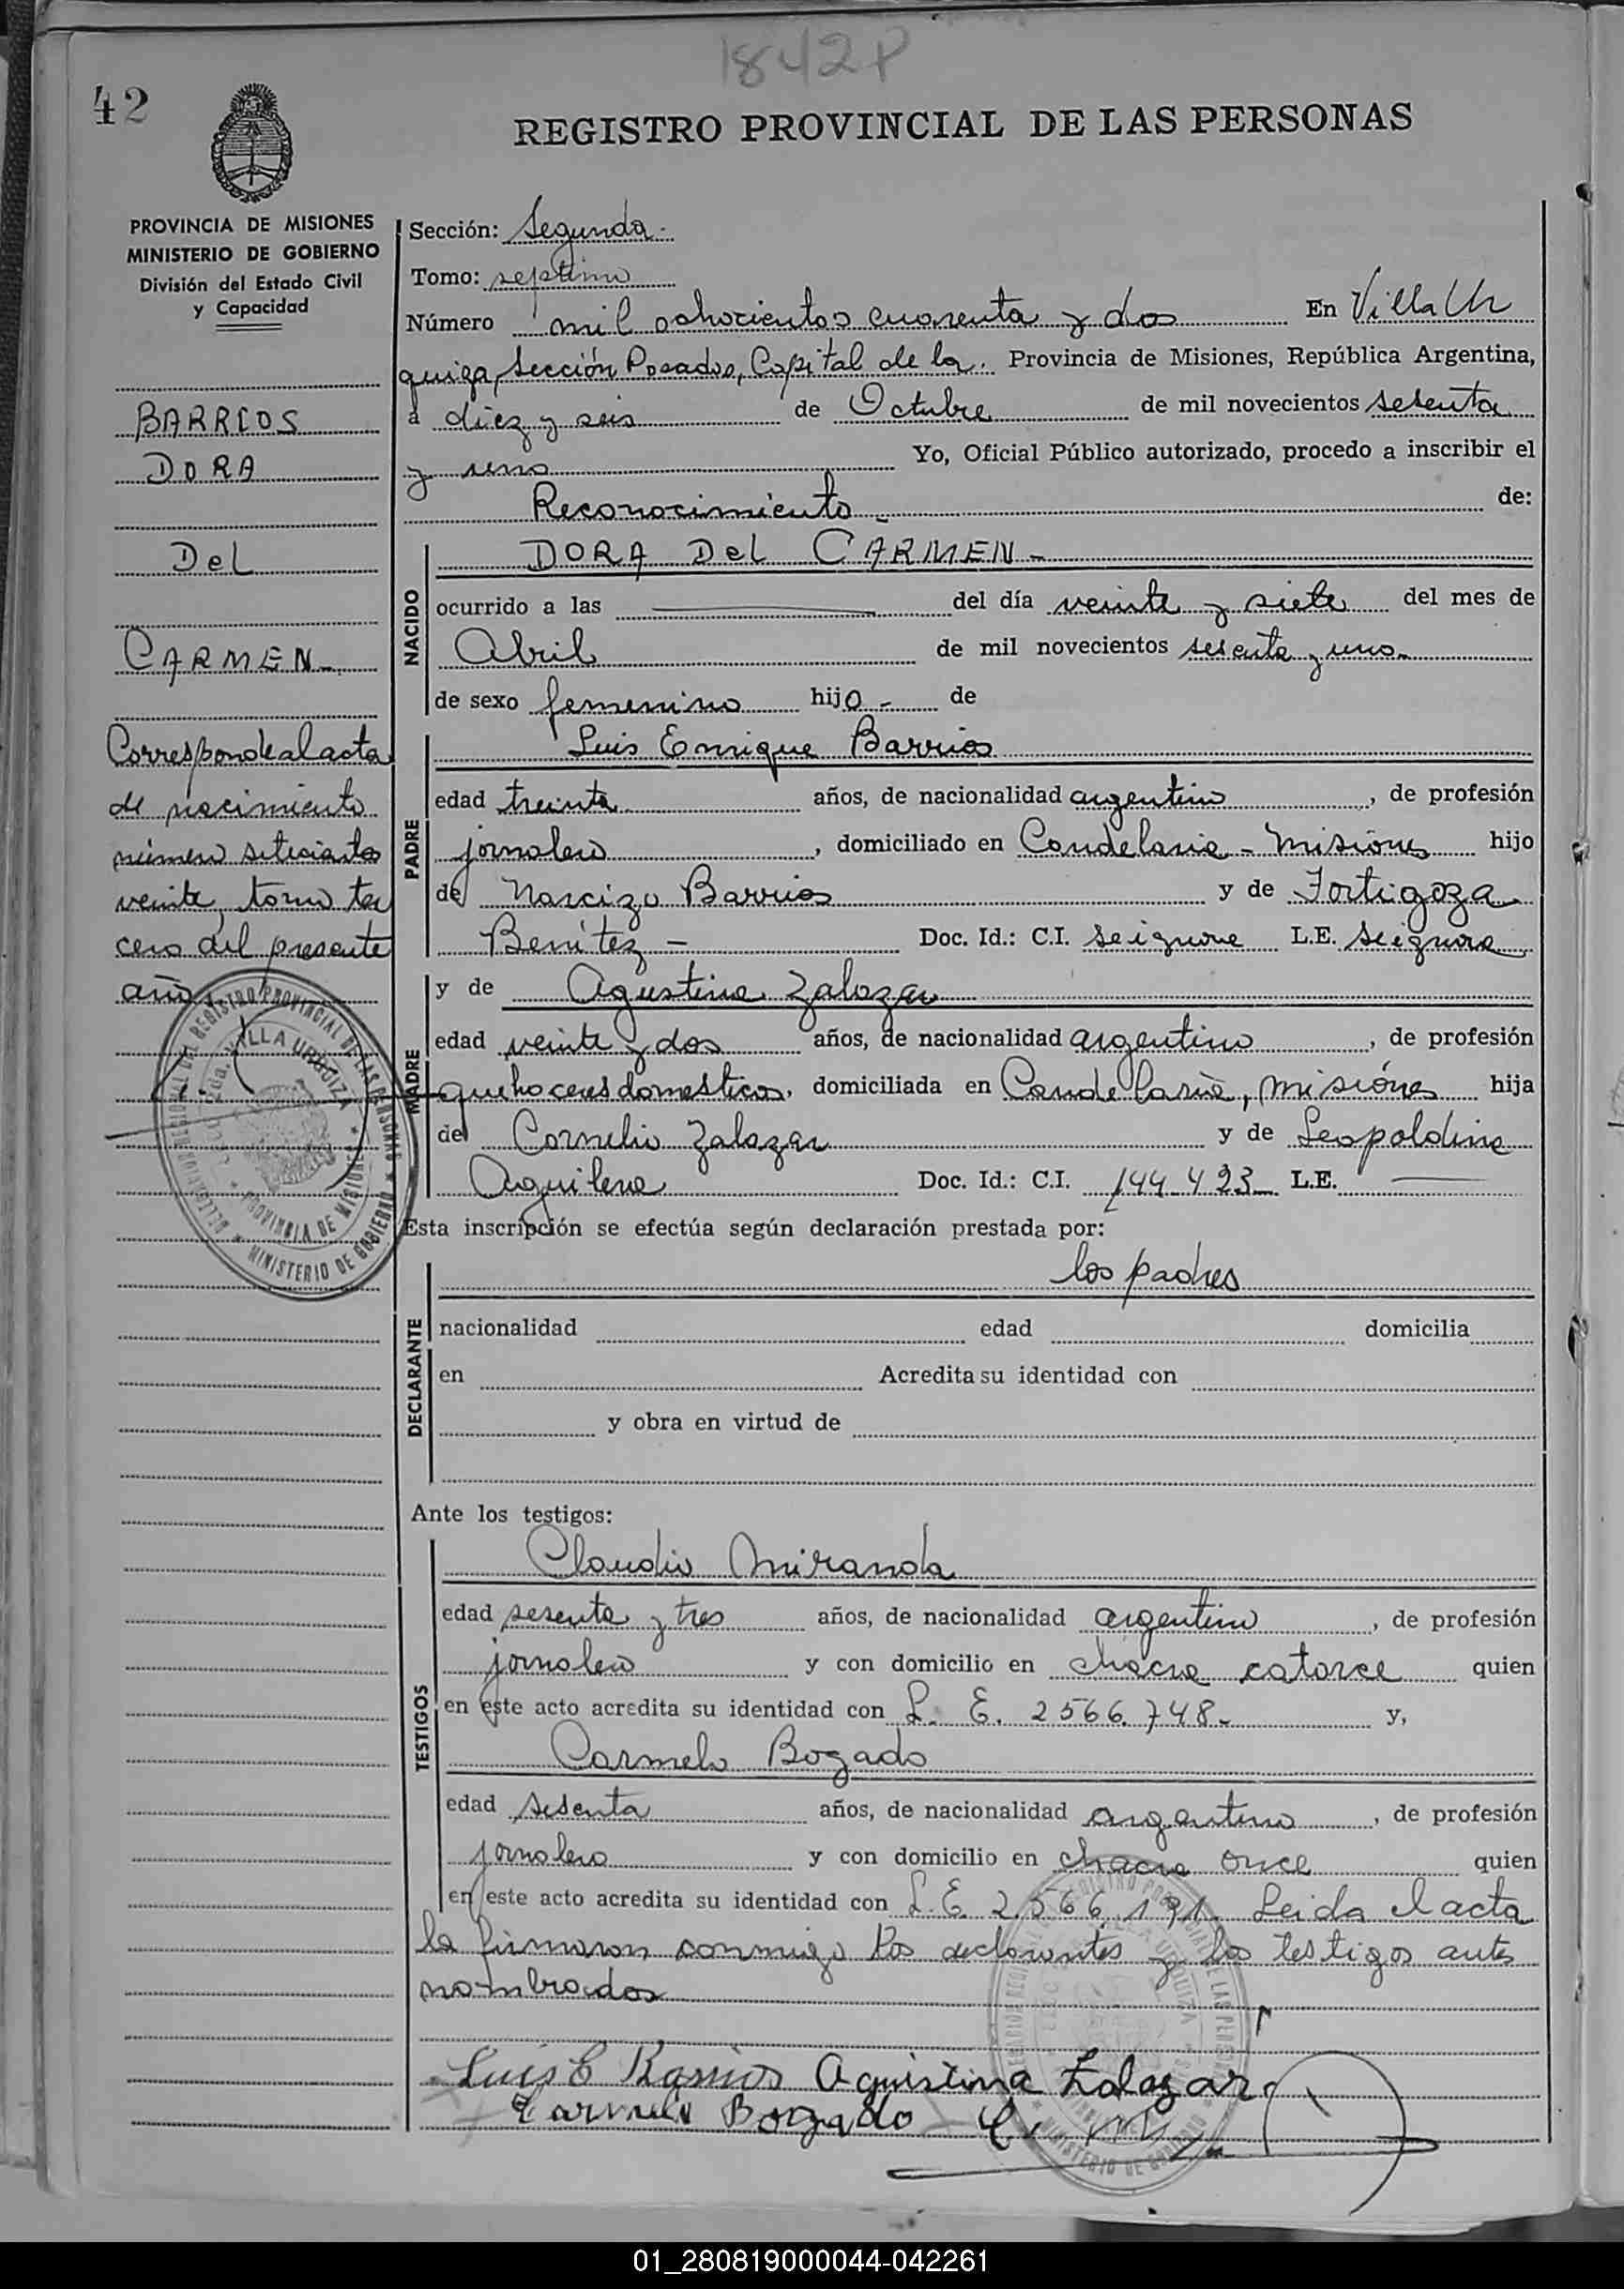 1842P
42
REGISTRO PROVINCIAL DE LAS PERSONAS
PROVINCIA DE MISIONES
MINISTERIO DE GOBIERNO
División del Estado Civil
y Capacidad
BARRIOS
DORA
Del
CARMEN
Corresponde al acta
de nacimiento
número setecientos
veinte, tomo ter
cero del presente
año
Sección: Segunda.
Tomo: septimo
Número mil ochocientos cuarenta y dos En Villa Ur
quiza, Sección Posadas, Capital de la. Provincia de Misiones, República Argentina,
a diez y seis de Octubre de mil novecientos sesenta
y uno Yo, Oficial Público autorizado, procedo a inscribir el
Reconocimiento de:
NACIDO
DORA Del CARMEN
ocurrido a las del día veinte y siete del mes de
Abril de mil novecientos sesenta y uno
de sexo femenino hijo de
PADRE
Luis Enrique Barrios
edad treinta años, de nacionalidad argentino, de profesión
jornalero, domiciliado en Candelaria - Misiones hijo
de Narcizo Barrios y de Fortigoza
Benítez - Doc. Id.: C.I. L.E.
MADRE
y de Agustina Zalazar
edad veinte y dos años, de nacionalidad argentino, de profesión
quehaceres domesticos, domiciliada en Candelaria, Misiones hija
de Cornelio Zalazar y de Leopoldina
Aguilera Doc. Id.: C.I. 144.423 L.E.
Esta inscripción se efectúa según declaración prestada por:
DECLARANTE
los padres
nacionalidad edad domicilia
en Acredita su identidad con
y obra en virtud de
Ante los testigos:
TESTIGOS
Claudio Miranda
edad sesenta y tres años, de nacionalidad argentino, de profesión
jornalero y con domicilio en chacra catorce quien
en este acto acredita su identidad con L. E. 2566.748- y,
Carmelo Bogado
edad sesenta años, de nacionalidad argentino, de profesión
jornalero y con domicilio en chacra once quien
en este acto acredita su identidad con L.E. 2.566.191. Leida el acta
la firmaron conmigo los declarantes y los testigos antes
nombrados
Luis E Barrios Agustina Zalazar
Carmelo Bogado
01_280819000044-042261